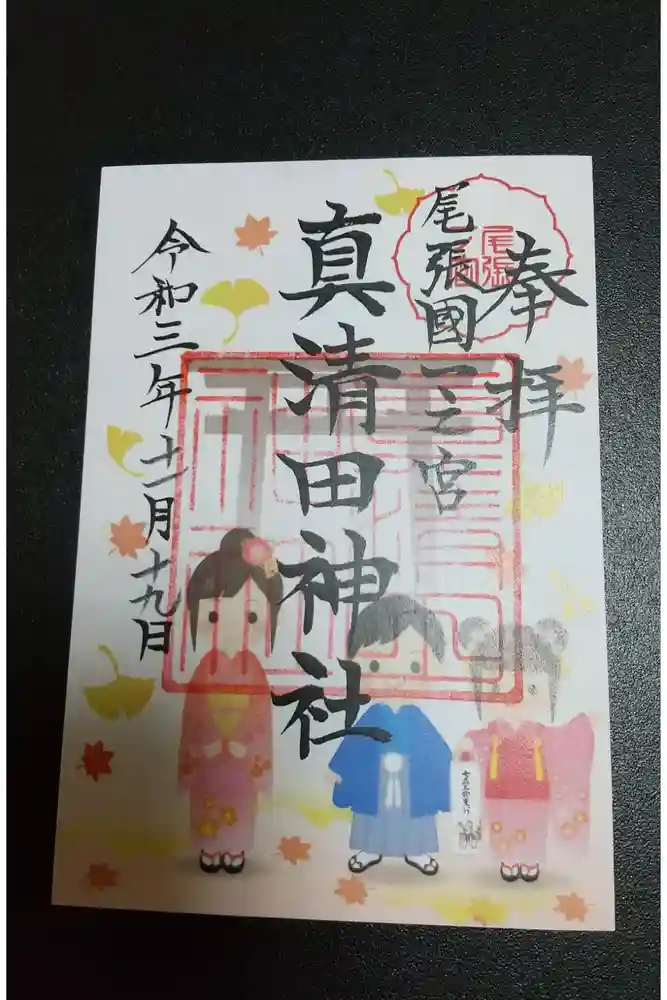 奉拝
尾張國一之宮
真清田神社
令和三年十一月十九日